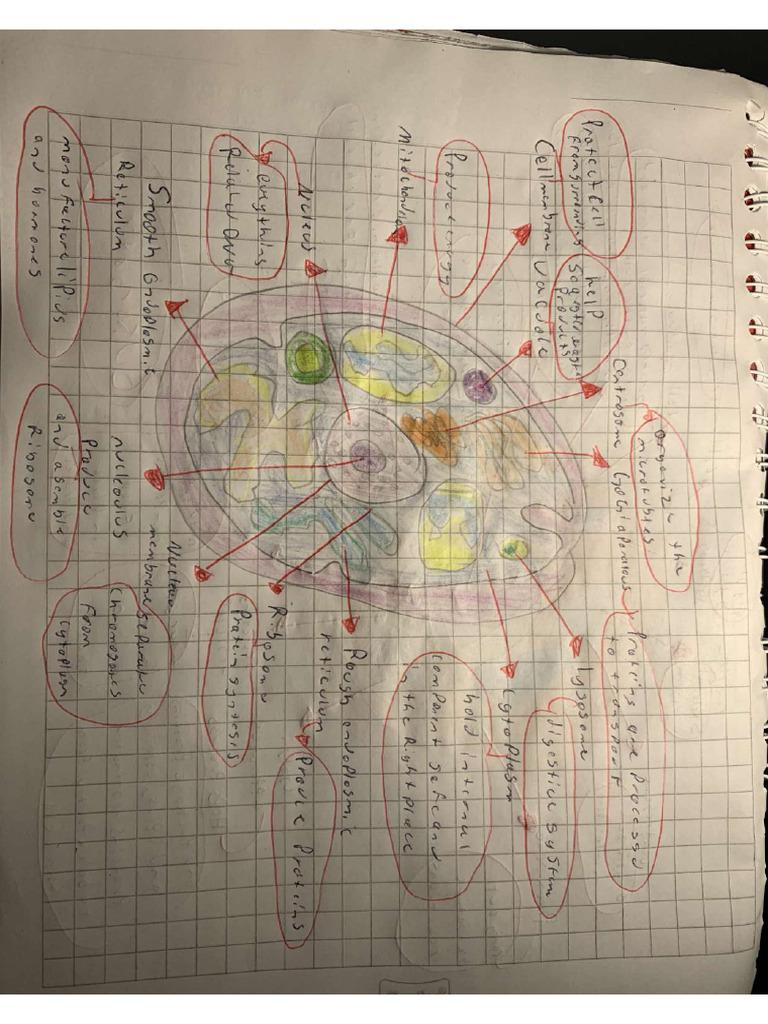 Protict cell
Cell membrane
help
Vacuole
Produce energy
Mitochondria
Nucleus
everything
Smooth Endoplasmic
Reticulum
manufacture lipids
and hormones
Centrosome
organize the
microtubles
Proteins are Processd
to transport
lysosome
digestive system
cytoplasm
hold internal
component safe and
in the Right place
Rough endoplasmic
reticulum
Produce Proteins
Ribosome
Protein syntesis
Nuclear
membrane
separate
chromosomes
from
cytoplasm
nucleolus
Produce
and asemble
Ribosome